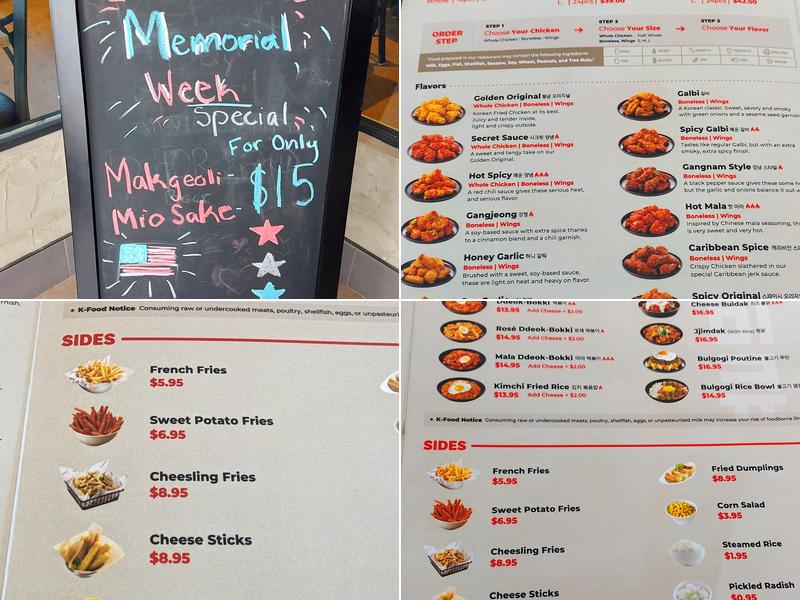 Memorial
Week
Special
For Only
Makgeoli - $15
Mio Sake -
L [24pcs] $39.00
L [24pcs] $42.00
ORDER STEP
STEP 1
Choose Your Chicken
Whole Chicken | Boneless | Wings
STEP 2
Choose Your Size
Whole Chicken Half, Whole
Boneless, Wings S, M, L
STEP 3
Choose Your Flavor
"Food prepared in our restaurant may contain the following ingredients
Milk, Eggs, Fish, Shellfish, Sesame, Soy, Wheat, Peanuts, and Tree Nuts."
Flavors
Golden Original 황금 오리지널
Whole Chicken | Boneless | Wings
Korean Fried Chicken at its best.
Juicy and tender inside,
light and crispy outside.
Secret Sauce 시크릿 양념
Whole Chicken | Boneless | Wings
A sweet and tangy take on our
Golden Original.
Hot Spicy 매운 양념
Whole Chicken | Boneless | Wings
A red chili sauce gives these serious heat,
and serious flavor.
Gangjeong 강정
Boneless | Wings
A soy-based sauce with extra spice thanks
to a cinnamon blend and a chili garnish.
Honey Garlic 허니 갈릭
Boneless | Wings
Brushed with a sweet, soy-based sauce,
these are light on heat and heavy on flavor.
Galbi 갈비
Boneless | Wings
A Korean classic. Sweet, savory and smoky
with green onions and a sesame seed garnish
Spicy Galbi 매운 갈비
Boneless | Wings
Tastes like regular Galbi, but with an extra
smoky, extra spicy finish.
Gangnam Style 강남 스타일
Boneless | Wings
A black pepper sauce gives these some
but the garlic and onions balance it out
Hot Mala 핫 마라
Boneless | Wings
Inspired by Chinese mala seasoning,
is very sweet and very hot.
Caribbean Spice 캐리비안
Boneless | Wings
Crispy Chicken slathered in our
special Caribbean jerk sauce.
Spicy Original 스파이시 오리지널
K-Food Notice Consuming raw or undercooked meats, poultry, shellfish, eggs, or
SIDES
French Fries
$5.95
Sweet Potato Fries
$6.95
Cheesling Fries
$8.95
Cheese Sticks
$8.95
Ddeok-Bokki 떡볶이
$13.95 Add Cheese + $2.00
Rosé Ddeok-Bokki 로제 떡볶이
$14.95 Add Cheese + $2.00
Mala Ddeok-Bokki 마라 떡볶이
$14.95 Add Cheese + $2.00
Kimchi Fried Rice 김치 볶음밥
$13.95 Add Cheese + $2.00
Cheese Buldak 치즈 불닭
$16.95
Jjimdak (With Rice) 찜닭
$16.95
Bulgogi Poutine 불고기 푸틴
$16.95
Bulgogi Rice Bowl 불고기
$14.95
K-Food Notice Consuming raw or undercooked meats, poultry, shellfish, eggs, or unpasteurized milk may increase your risk of foodborne
SIDES
French Fries
$5.95
Sweet Potato Fries
$6.95
Cheesling Fries
$8.95
Cheese Sticks
Fried Dumplings
$8.95
Corn Salad
$3.95
Steamed Rice
$1.95
Pickled Radish
$0.95